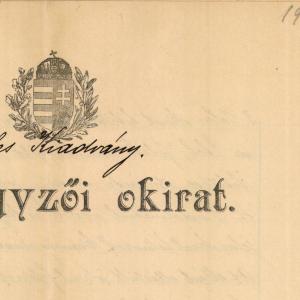 19
Kiadvány.
gyzői okirat.